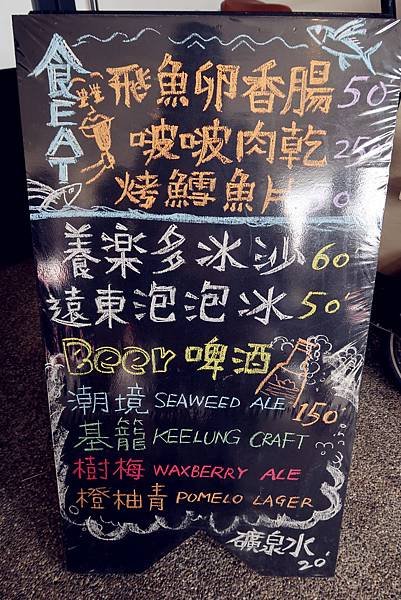 食EAT
飛魚卵香腸 50
啵啵肉乾 250
烤鱈魚片
養楽多冰沙 60
遠東泡泡冰 50
Beer 啤酒
潮境 SEAWEED ALE 150
基籠 KEELUNG CRAFT
樹梅 WAXBERRY ALE
橙柚青 POMELO LAGER
礦泉水 20